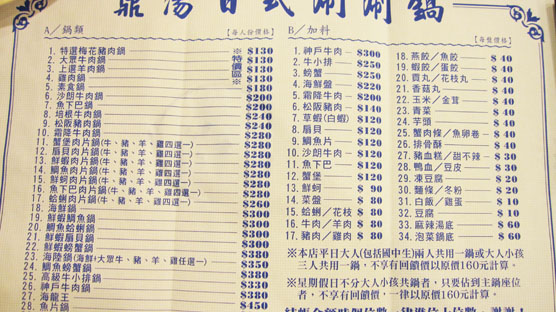 鼎湯日式涮涮鍋
A／鍋類 【每人份價格】
1. 特選梅花豬肉鍋 $130
2. 大眾牛肉鍋 $130
3. 上選羊肉鍋 $130
※特價區※
4. 雞肉鍋 $130
5. 素食鍋 $180
6. 沙朗牛肉鍋 $200
7. 魚下巴鍋 $200
8. 培根牛肉鍋 $240
9. 松阪豬肉鍋 $280
10. 霜降牛肉鍋 $280
11. 蟹堡肉片鍋(牛、豬、羊、雞四選一) $280
12. 扇貝肉片鍋(牛、豬、羊、雞四選一) $280
13. 鮮蝦肉片鍋(牛、豬、羊、雞四選一) $280
14. 鯛魚肉片鍋(牛、豬、羊、雞四選一) $280
15. 鮮蚵肉片鍋(牛、豬、羊、雞四選一) $280
16. 魚下巴肉片鍋(牛、豬、羊、雞四選一) $280
17. 蛤蜊肉片鍋(牛、豬、羊、雞四選一) $260
18. 海鮮鍋 $300
19. 鮮蝦鯛魚鍋 $300
20. 鯛魚蛤蜊鍋 $300
21. 鮮蝦扇貝鍋 $300
22. 鮮蝦螃蟹鍋 $380
23. 海陸鍋(海鮮+大眾牛、豬、羊、雞任選一) $350
24. 鯛魚螃蟹鍋 $380
25. 高級牛小排鍋 $330
26. 神戶牛肉鍋 $380
27. 海龍王 $380
28. 魚片鍋 $450
B／加料 【每盤價格】
1. 神戶牛肉 $300
2. 牛小排 $250
3. 螃蟹 $250
4. 海鮮盤 $220
5. 霜降牛肉 $200
6. 松阪豬肉 $140
7. 草蝦(白蝦) $120
8. 扇貝 $120
9. 鯛魚片 $120
10. 沙朗牛肉 $120
11. 魚下巴 $120
12. 蟹堡 $120
13. 鮮蚵 $ 90
14. 菜盤 $ 80
15. 蛤蜊／花枝 $ 80
16. 牛肉／羊肉 $ 80
17. 豬肉／雞肉 $ 80
18. 燕餃／魚餃 $ 40
19. 蝦餃／蛋餃 $ 40
20. 貢丸／花枝丸 $ 40
21. 香菇丸 $ 40
22. 玉米／金茸 $ 40
23. 青菜 $ 40
24. 芋頭 $ 40
25. 蟹肉條／魚卵卷 $ 40
26. 排骨酥 $ 40
27. 豬血糕／甜不辣 $ 30
28. 鴨血／豆皮 $ 30
29. 凍豆腐 $ 20
30. 麵條／冬粉 $ 20
31. 白飯／雞蛋 $ 10
32. 豆腐 $ 10
33. 麻辣湯底 $ 60
34. 泡菜鍋底 $ 60
※本店平日大人(包括國中生)兩人共用一鍋或大人小孩
三人共用一鍋，不享有回饋價以原價160元計算。
※星期假日不分大人小孩共鍋者，只要佔到主鍋座位
者，不享有回饋價，一律以原價160元計算。